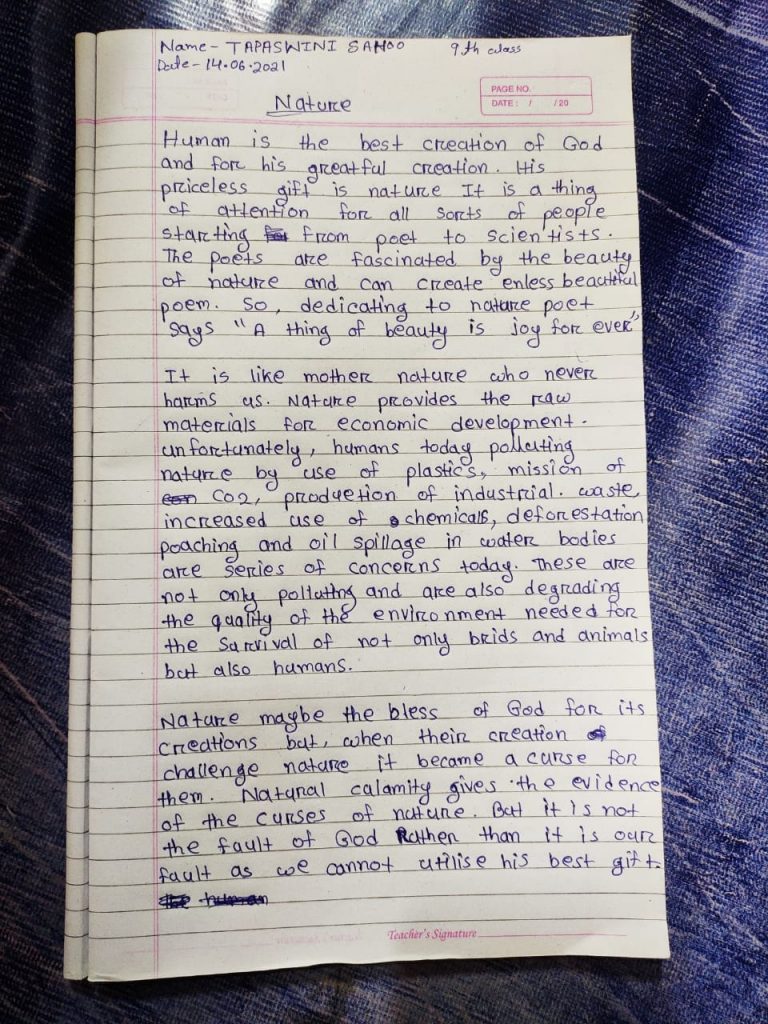 Name- TAPASWINI SAHOO 9th class
Date- 14.06.2021
PAGE NO.
DATE: / /20
Nature
Human is the best creation of God
and for his greatful creation. His
priceless gift is nature It is a thing
of attention for all sorts of people
starting from poet to scientists.
The poets are fascinated by the beauty
of nature and can create enless beautiful
poem. So, dedicating to nature poet
says "A thing of beauty is joy for ever"
It is like mother nature who never
harms us. Nature provides the raw
materials for economic development.
unfortunately, humans today polluting
nature by use of plastics, mission of
CO2, production of industrial. waste,
increased use of chemicals, deforestation
poaching and oil spillage in water bodies
are series of concerns today. These are
not only polluting and are also degrading
the quality of the environment needed for
the survival of not only brids and animals
but also humans.
Nature maybe the bless of God for its
creations but, when their creation
challenge nature it became a curse for
them. Natural calamity gives the evidence
of the curses of nature. But it is not
the fault of God Rather than it is our
fault as we cannot utilise his best gift.
Teacher's Signature